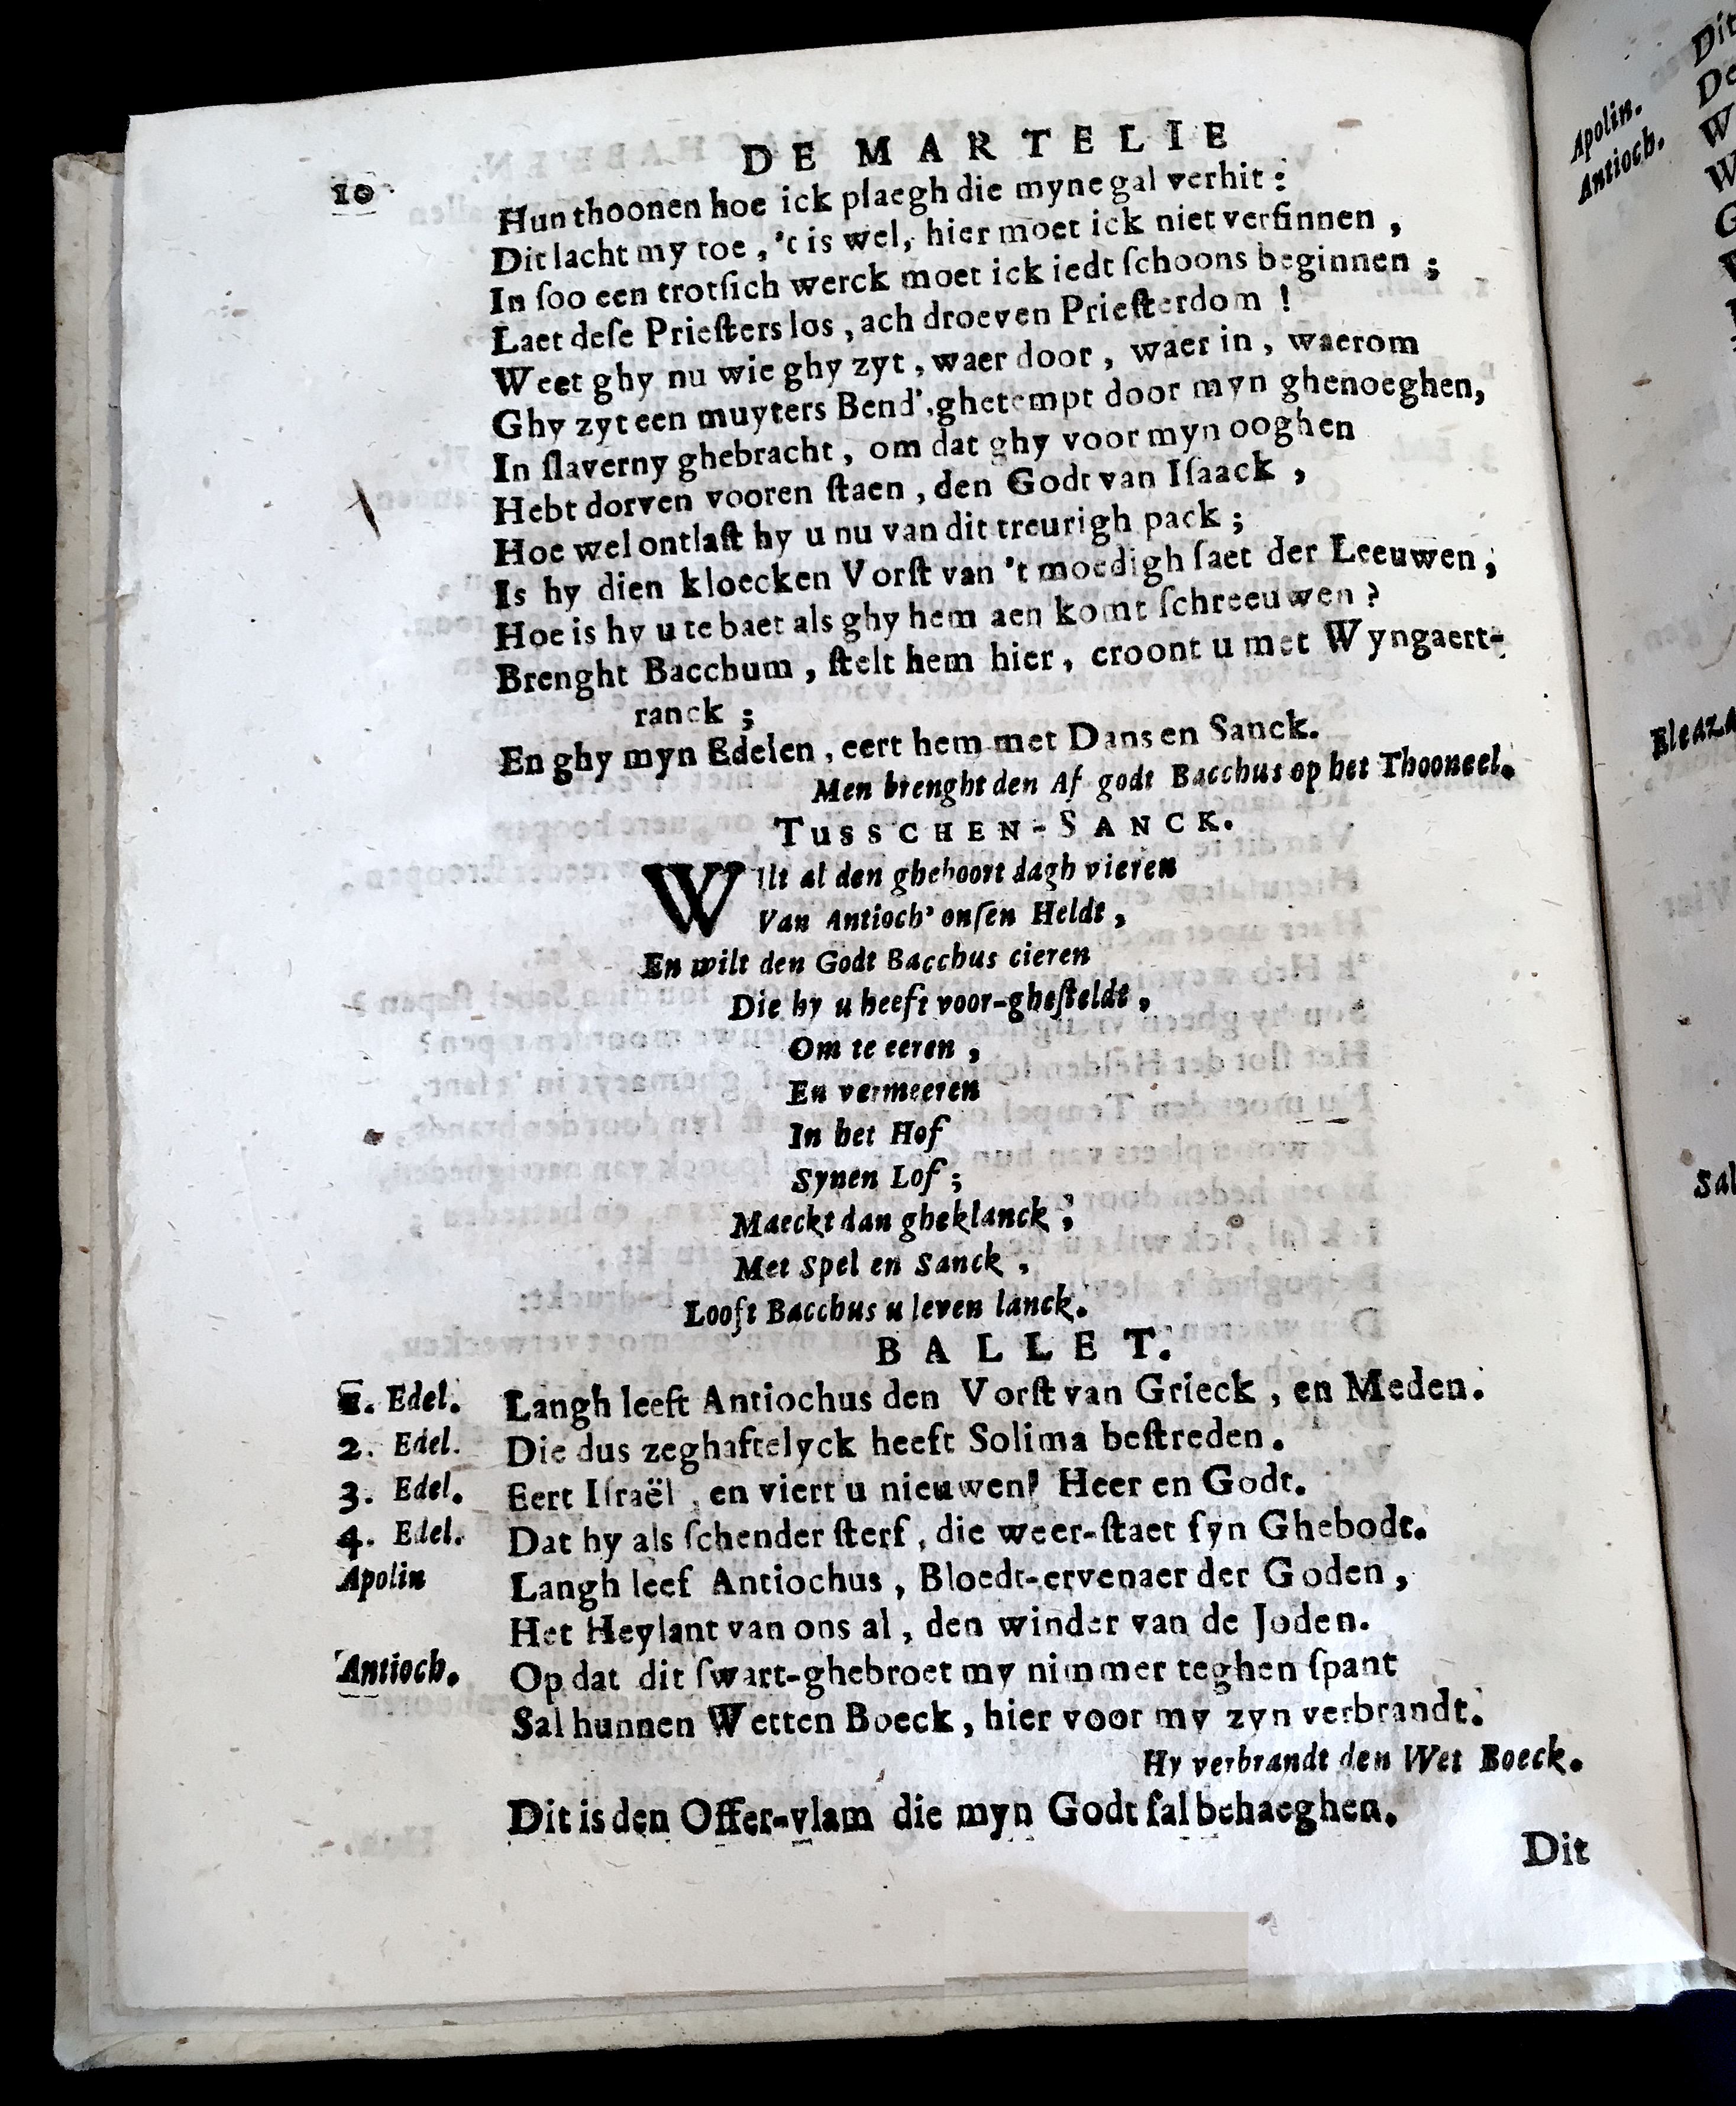 DE MARTELIE
10
Hun thoonen hoe ick plaegh die myne gal verhit:
Dit lacht my toe, 't is wel, hier moet ick niet versinnen,
In ſoo een trotſich werck moet ick iedt ſchoons beginnen;
Laet deſe Prieſters los, ach droeven Prieſterdom!
Weet ghy nu wie ghy zyt, waer door, waer in, waerom
Ghy zyt een muyters Bend', ghetempt door myn ghenoeghen,
In ſlaverny ghebracht, om dat ghy voor myn ooghen
Hebt dorven vooren ſtaen, den Godt van Iſaack,
Hoe wel ontlaſt hy u nu van dit treurigh pack;
Is hy dien kloecken Vorſt van 't moedigh ſaet der Leeuwen,
Hoe is hy u te baet als ghy hem aen komt ſchreeuwen?
Brenght Bacchum, ſtelt hem hier, croont u met Wyngaert-
ranck;
En ghy myn Edelen, eert hem met Dans en Sanck.
Men brenght den Af godt Bacchus op het Thooneel.
TUSSCHEN-SANCK.
WIlt al den gheboort dagh vieren
Van Antioch' onſen Heldt,
En wilt den Godt Bacchus cieren
Die hy u heeft voor-gheſteldt,
Om te eeren,
En vermeeren
In het Hof
Synen Lof;
Maeckt dan gheklanck,
Met Spel en Sanck,
Looft Bacchus u leven lanck.
BALLET.
1. Edel. Langh leeft Antiochus den Vorſt van Grieck, en Meden.
2. Edel. Die dus zeghaftelyck heeft Solima beſtreden.
3. Edel. Eert Iſraël, en viert u nieuwen Heer en Godt.
4. Edel. Dat hy als ſchender ſterf, die weer-ſtaet ſyn Ghebodt.
Apolin Langh leef Antiochus, Bloedt-ervenaer der Goden,
Het Heylant van ons al, den winder van de Joden.
Antioch. Op dat dit ſwart-ghebroet my nimmer teghen ſpant
Sal hunnen Wetten Boeck, hier voor my zyn verbrandt.
Hy verbrandt den Wet Boeck.
Dit is den Offer-vlam die myn Godt ſal behaeghen.
Dit
Apolin.
Antioch.
Dit
De